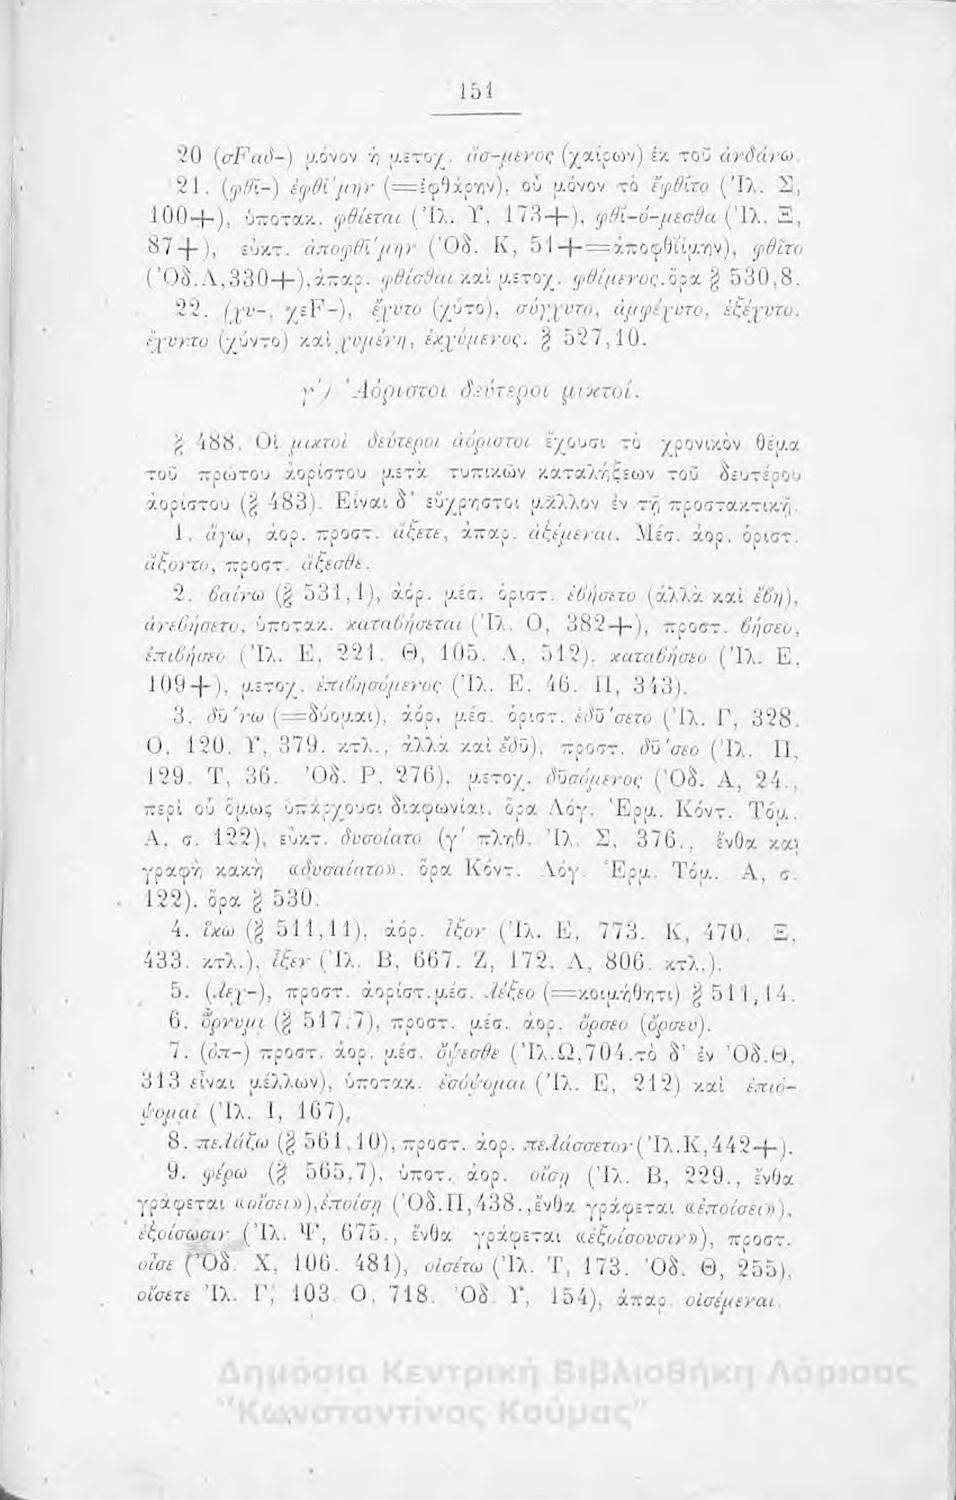 151
20 (σFαδ-) μόνον ἡ μετοχ. ἄσ-μενος (χαίρων) ἐκ τοῦ ἁνδάνω.
21. (φθῐ-) ἐφθῐ́μην (=ἐφθάρην), οὗ μόνον τὸ ἔφθῐτο (Ἰλ. Σ,
100+), ὑποτακ. φθίεται (Ἰλ. Υ, 173+), φθῐ-ό-μεσθα (Ἰλ. Ξ,
87+), εὐκτ. ἀποφθῑ́μην (Ὀδ. Κ, 51+=ἀποφθῐίμην), φθῖτο
(Ὀδ.Λ,330+), ἀπαρ. φθίσθαι καὶ μετοχ. φθίμενος. ὅρα § 530,8.
22. (χυ-, χεF-), ἔχυτο (χύτο), σύγχυτο, ἀμφέχυτο, ἐξέχυτο,
ἔχυντο (χύντο) καὶ χυμένη, ἐκχύμενος. § 527,10.
γ΄) Ἀόριστοι δεύτεροι μικτοί.
§ 488. Οἱ μικτοὶ δεύτεροι ἀόριστοι ἔχουσι τὸ χρονικὸν θέμα
τοῦ πρώτου ἀορίστου μετὰ τυπικῶν καταλήξεων τοῦ δευτέρου
ἀορίστου (§ 483). Εἶναι δ' εὔχρηστοι μᾶλλον ἐν τῇ προστακτικῇ.
1. ἄγω, ἀορ. προστ. ἄξετε, ἀπαρ. ἀξέμεναι. Μέσ. ἀορ. ὁριστ.
ἄξοντο, προστ. ἄξεσθε.
2. βαίνω (§ 531,1), ἀόρ. μέσ. ὁριστ. ἐβήσετο (ἀλλὰ καὶ ἔβη),
ἀνεβήσετο, ὑποτακ. καταβήσεται (Ἰλ. Ο, 382+), προστ. βήσεο,
ἐπιβήσεο (Ἰλ. Ε, 221. Θ, 105. Λ, 512), καταβήσεο (Ἰλ. Ε,
109+), μετοχ. ἐπιβησόμενος (Ἰλ. Ε, 46. Π, 343).
3. δῡ́νω (=δύομαι), ἀόρ. μέσ. ὁριστ. ἐδῡ́σετο (Ἰλ. Γ, 328.
Ο, 120. Υ, 379. κτλ., ἀλλὰ καὶ ἔδῡ), προστ. δῡ́σεο (Ἰλ. Π,
129. Τ, 36. Ὀδ. Ρ, 276), μετοχ. δῡσόμενος (Ὀδ. Α, 24.,
περὶ οὗ ὅμως ὑπάρχουσι διαφωνίαι. ὅρα Λόγ. Ἑρμ. Κόντ. Τόμ.
Α, σ. 122), εὐκτ. δυσοίατο (γ΄ πληθ. Ἰλ. Σ, 376., ἔνθα καὶ
γραφὴ κακὴ «δυσαίατο». ὅρα Κόντ. Λόγ. Ἑρμ. Τόμ. Α, σ.
122). ὅρα § 530.
4. ἵκω (§ 511,11), ἀόρ. ἷξον (Ἰλ. Ε, 773. Κ, 470. Ξ,
433. κτλ.), ἷξεν (Ἰλ. Β, 667. Ζ, 172. Λ, 806. κτλ.).
5. (λεχ-), προστ. ἀορίστ. μέσ. λέξεο (=κοιμήθητι) § 511,14.
6. ὄρνυμι (§ 517,7), προστ. μέσ. ἀορ. ὄρσεο (ὄρσευ).
7. (ὀπ-) προστ. ἀορ. μέσ. ὄψεσθε (Ἰλ.Ω,704. τὸ δ' ἐν Ὀδ.Θ,
313 εἶναι μέλλων), ὑποτακ. ἐσόψομαι (Ἰλ. Ε, 212) καὶ ἐπιό-
ψομαι (Ἰλ. Ι, 167),
8. πελάζω (§ 561,10), προστ. ἀορ. πελάσσετον (Ἰλ.Κ,442+).
9. φέρω (§ 565,7), ὑποτ. ἀορ. οἴσῃ (Ἰλ. Β, 229., ἔνθα
γράφεται «οἴσει»), ἐποίσῃ (Ὀδ.Π,438., ἔνθα γράφεται «ἐποίσει»),
ἐξοίσωσιν (Ἰλ. Ψ, 675., ἔνθα γράφεται «ἐξοίσουσιν»), προστ.
οἶσε (Ὀδ. Χ, 106. 481), οἰσέτω (Ἰλ. Τ, 173. Ὀδ. Θ, 255),
οἴσετε Ἰλ. Γ, 103. Ο, 718. Ὀδ. Υ, 154), ἀπαρ. οἰσέμεναι
Δημόσια Κεντρική Βιβλιοθήκη Λάρισας
"Κωνσταντίνος Κούμας"